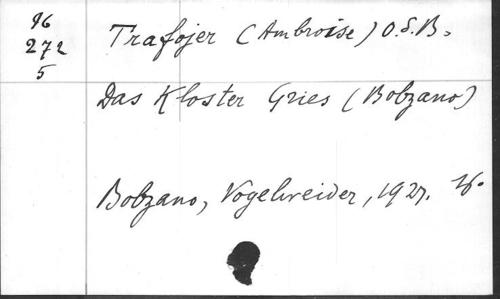 96
272
5
Trafojer (Ambroise) O.S.B.
Das Kloster Gries (Bobzano)
Bobzano, Vogelweider, 1927.